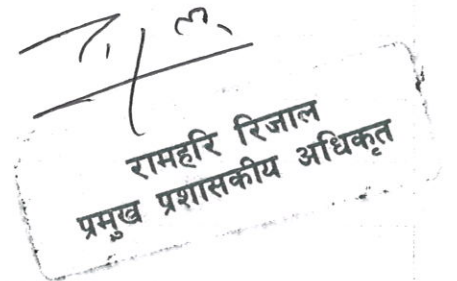 रामहरि रिजाल
प्रमुख प्रशासकीय अधिकृत